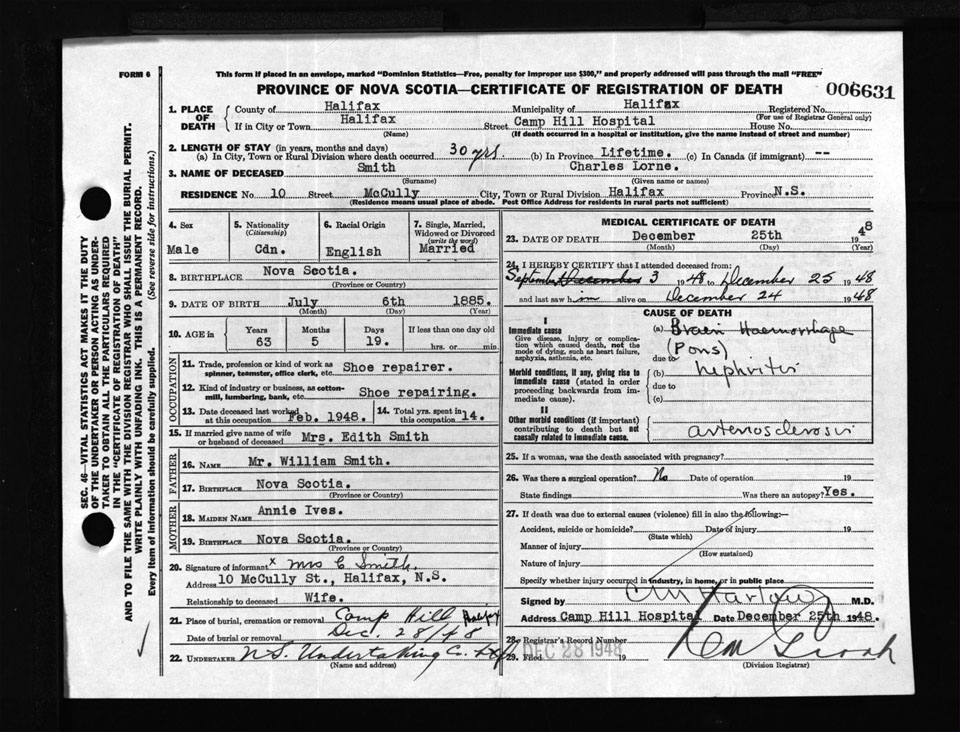 FORM 6
This form if placed in an envelope, marked "Dominion Statistics—Free, penalty for improper use $300," and properly addressed will pass through the mail "FREE"
PROVINCE OF NOVA SCOTIA—CERTIFICATE OF REGISTRATION OF DEATH
006631
SEC. 46—VITAL STATISTICS ACT MAKES IT THE DUTY
OF THE UNDERTAKER OR PERSON ACTING AS UNDER-
TAKER TO OBTAIN ALL THE PARTICULARS REQUIRED
IN THE "CERTIFICATE OF REGISTRATION OF DEATH"
AND TO FILE THE SAME WITH THE DIVISION REGISTRAR WHO SHALL ISSUE THE BURIAL PERMIT.
WRITE PLAINLY WITH UNFADING INK. THIS IS A PERMANENT RECORD.
Every item of information should be carefully supplied. (See reverse side for instructions.)
1. PLACE OF DEATH County of Halifax Municipality of Halifax Registered No.
(For use of Registrar General only)
If in City or Town Halifax Street Camp Hill Hospital House No.
(Name) (If death occurred in a hospital or institution, give the name instead of street and number)
2. LENGTH OF STAY (in years, months and days)
(a) In City, Town or Rural Division where death occurred 30 yrs. (b) In Province Lifetime. (c) In Canada (if immigrant) --
3. NAME OF DECEASED Smith Charles Lorne.
(Surname) (Given name or names)
RESIDENCE No. 10 Street McCully City, Town or Rural Division Halifax Province N.S.
(Residence means usual place of abode. Post Office Address for residents in rural parts not sufficient)
4. Sex Male
5. Nationality (Citizenship) Cdn.
6. Racial Origin English
7. Single, Married, Widowed or Divorced (write the word) Married
8. BIRTHPLACE Nova Scotia.
(Province or Country)
9. DATE OF BIRTH July 6th 1885.
(Month) (Day) (Year)
10. AGE in Years 63 Months 5 Days 19. If less than one day old hrs. or min.
OCCUPATION
11. Trade, profession or kind of work as spinner, teamster, office clerk, etc. Shoe repairer.
12. Kind of industry or business, as cotton-mill, lumbering, bank, etc. Shoe repairing.
13. Date deceased last worked at this occupation Feb. 1948. 14. Total yrs. spent in this occupation 14.
15. If married give name of wife or husband of deceased Mrs. Edith Smith
FATHER
16. NAME Mr. William Smith.
17. BIRTHPLACE Nova Scotia.
(Province or Country)
MOTHER
18. MAIDEN NAME Annie Ives.
19. BIRTHPLACE Nova Scotia.
(Province or Country)
20. Signature of informant x Mrs C Smith.
Address 10 McCully St., Halifax, N.S.
Relationship to deceased Wife.
21. Place of burial, cremation or removal Camp Hill Halifax
Date of burial or removal Dec. 28/48
22. UNDERTAKER N.S. Undertaking Co. Hfx
(Name and address)
MEDICAL CERTIFICATE OF DEATH
23. DATE OF DEATH December 25th 1948
(Month) (Day) (Year)
24. I HEREBY CERTIFY that I attended deceased from:
September December 3 1948 to December 25 1948
and last saw him alive on December 24 1948
CAUSE OF DEATH
I
Immediate cause
Give disease, injury or complication which caused death, not the mode of dying, such as heart failure, asphyxia, asthenia, etc.
(a) Brain Haemorrhage
(Pons)
due to
Morbid conditions, if any, giving rise to immediate cause (stated in order proceeding backwards from immediate cause).
(b) nephritis
due to
(c)
II
Other morbid conditions (if important) contributing to death but not causally related to immediate cause.
arteriosclerosis
25. If a woman, was the death associated with pregnancy?
26. Was there a surgical operation? No Date of operation 19
State findings Was there an autopsy? Yes.
27. If death was due to external causes (violence) fill in also the following:—
Accident, suicide or homicide? Date of injury 19
(State which)
Manner of injury
(How sustained)
Nature of injury
Specify whether injury occurred in industry, in home, or in public place
Signed by M.D.
Address Camp Hill Hospital Date December 25th 1948.
28. Registrar's Record Number
29. Filed DEC 28 1948 19
(Division Registrar)